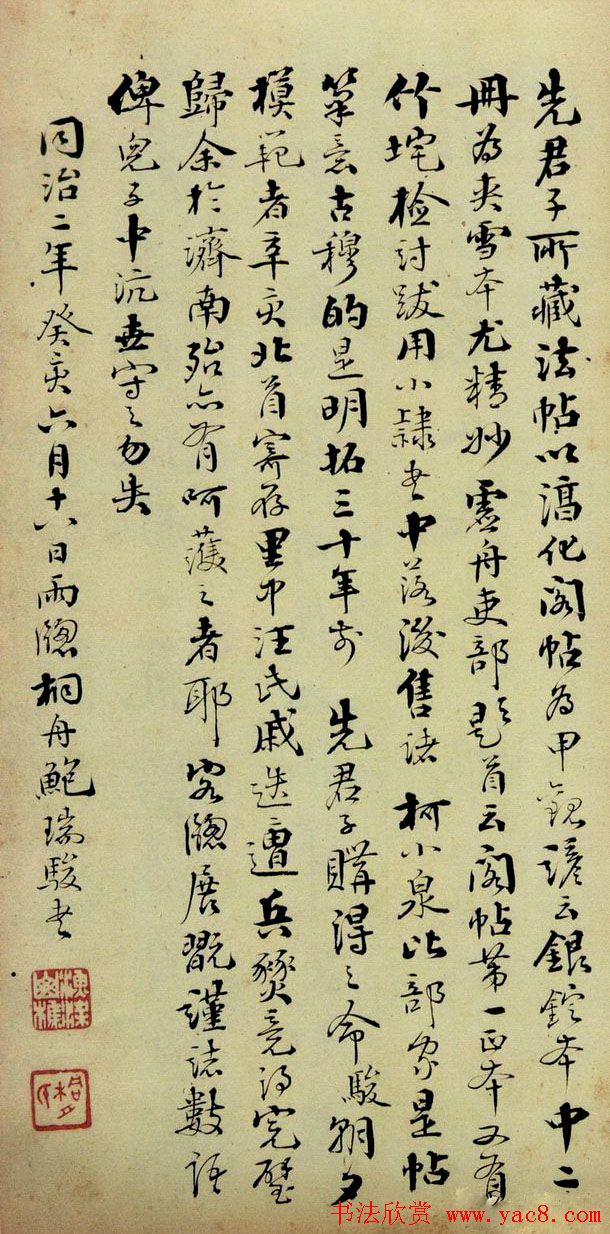 先君子所藏法帖以淳化阁帖為甲觀諺云銀錠本中二
冊為夾雪本尤精妙虛舟吏部題首云阁帖苐一正本又有
竹垞檢討跋用小隸書中落後售諸柯小泉比部家是帖
筆意古穆的是明拓三十年前先君子購得之命駿朝夕
模範者辛亥北首寄存里中汪氏戚迭遭兵燹竟得完璧
歸余於濟南殆亦有呵護之者耶客窗展翫謹誌數語
俾兒子中沆世守之勿失
同治二年癸亥六月十八日雨窗桐舟鮑瑞駿書
书法欣赏 www.yac8.com